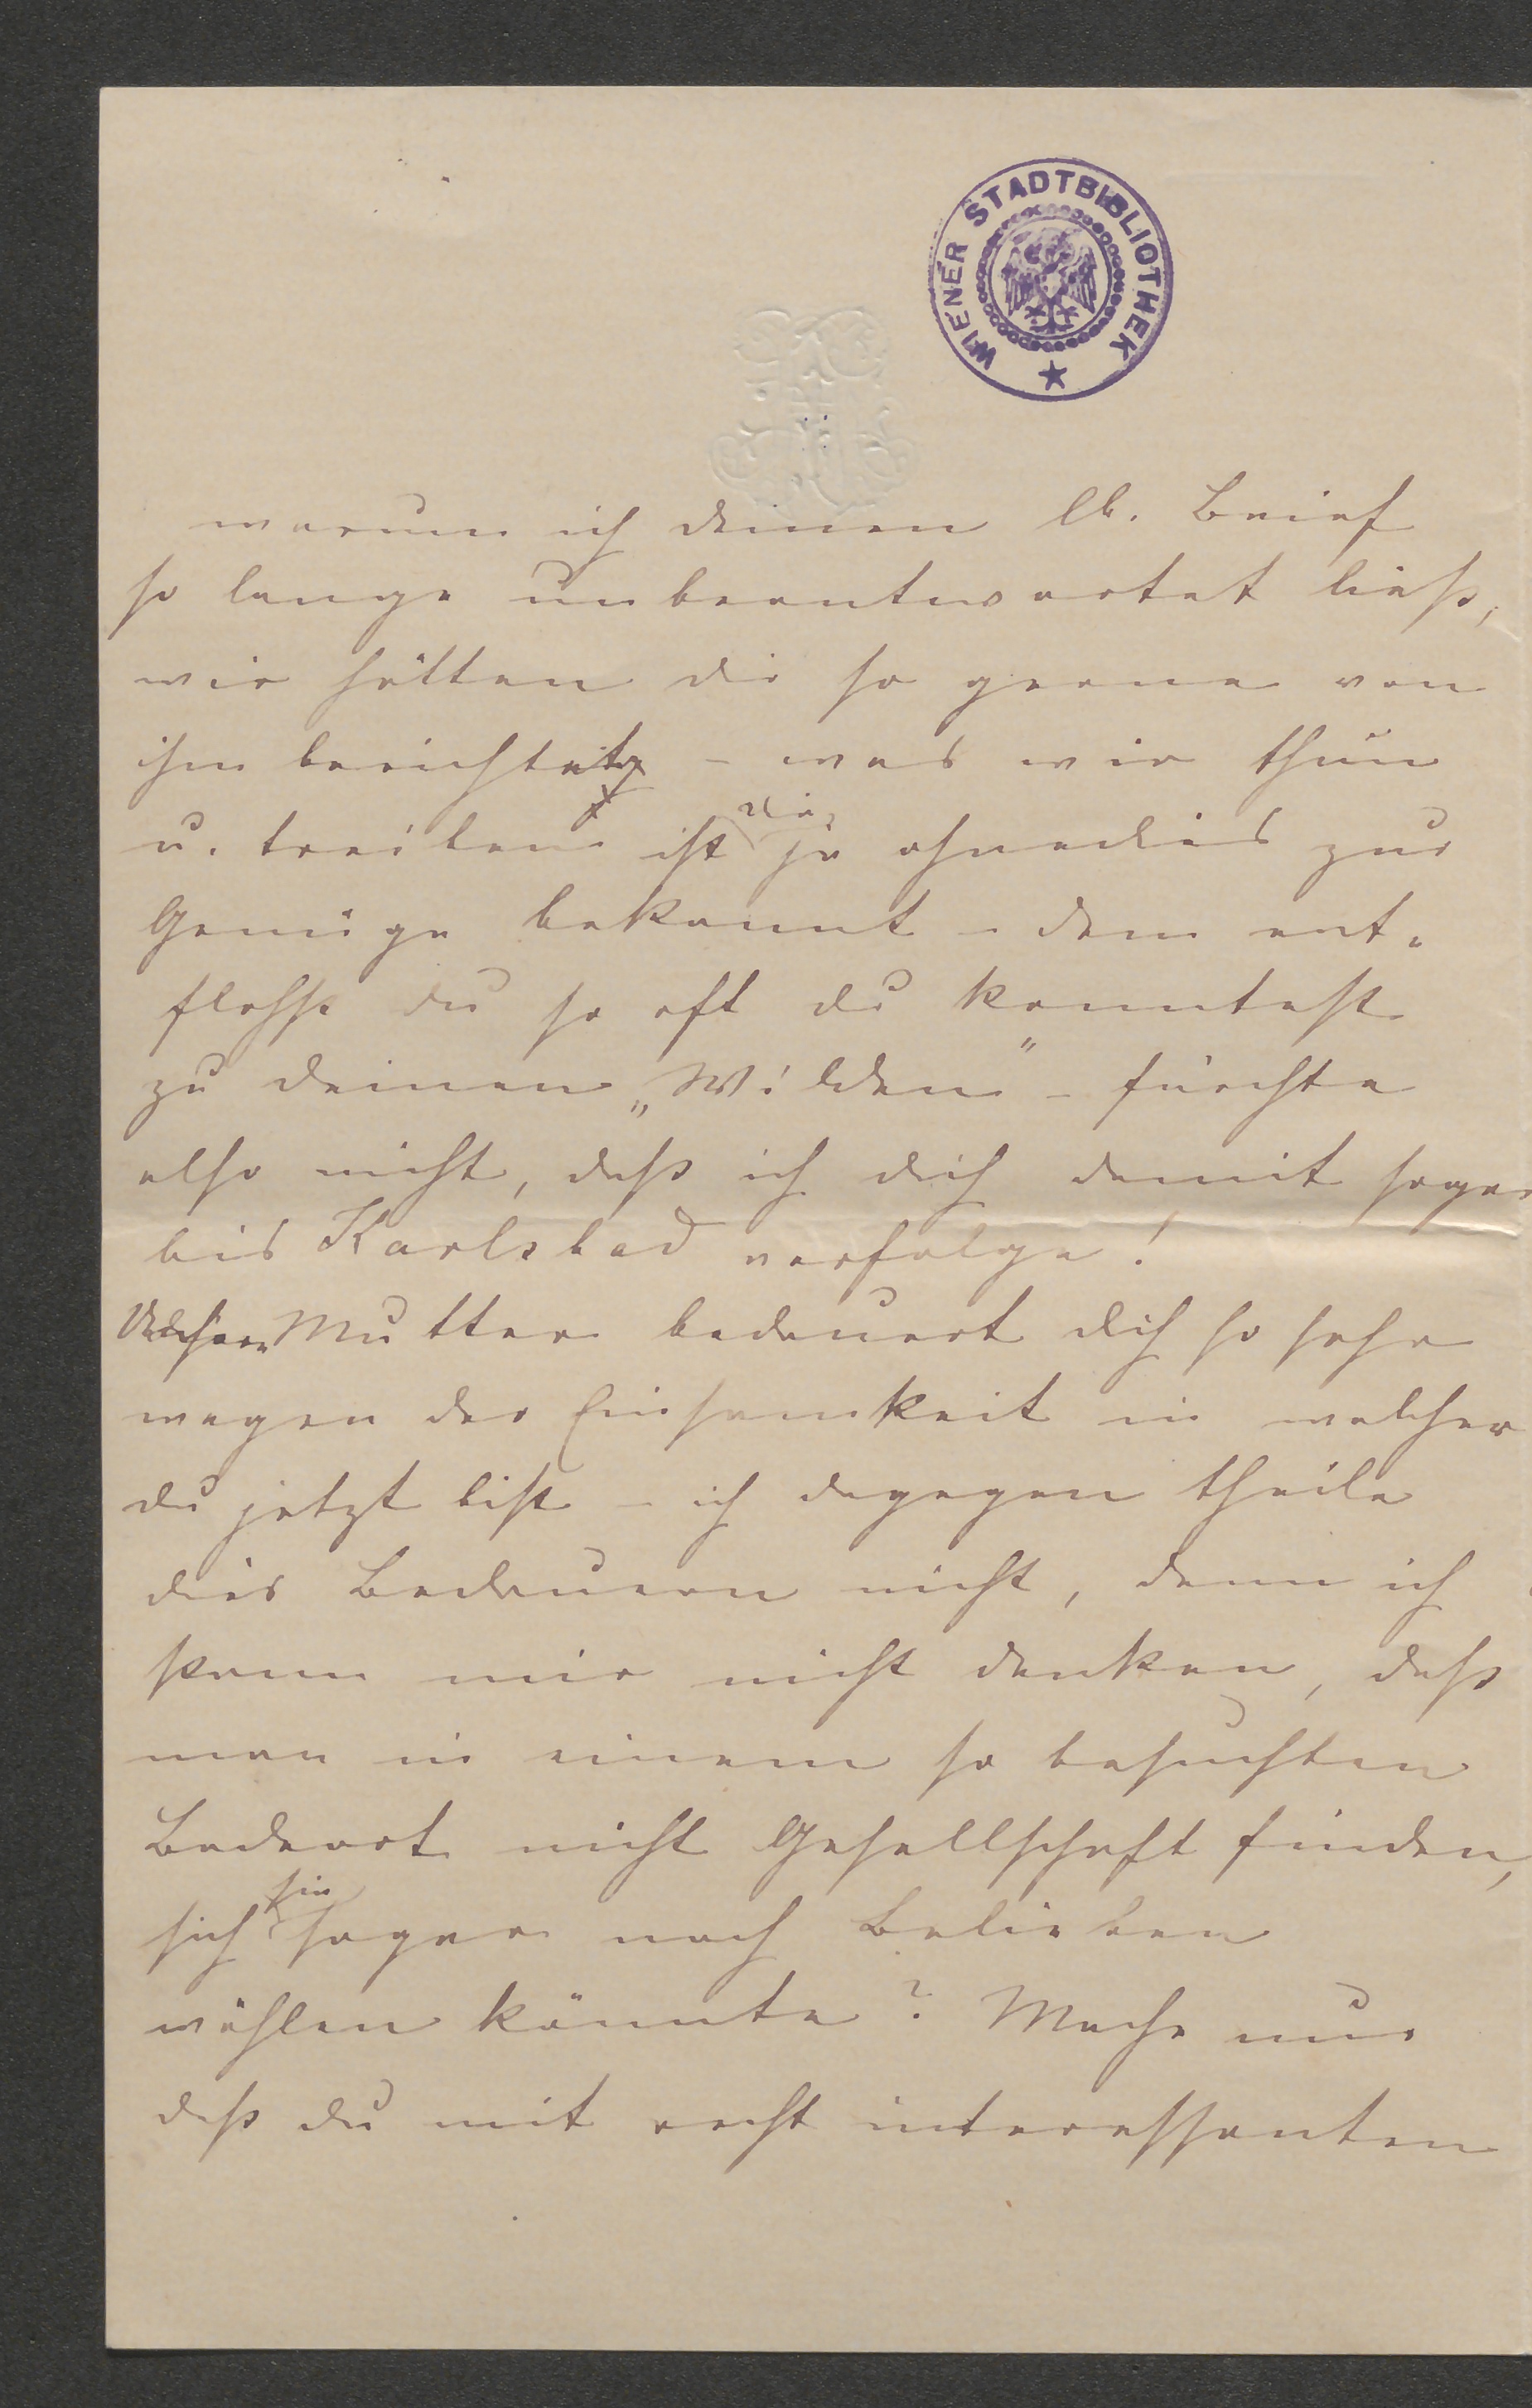 WIENER STADTBIBLIOTHEK
warum ich deinen lb. Brief
so lange unbeantwortet ließ,
wir hätten dir so gerne von
ihm berichtet – was wir thun
u. treiben ist dir ja ohnedies zur
Genüge bekannt – dem ent-
flohst du so oft du konntest
zu deinen „Wilden" – fürchte
also nicht, daß ich dich damit sogar
bis Karlsbad verfolge!
Unsere Mutter bedauert dich so sehr
wegen der Einsamkeit in welcher
du jetzt bist – ich dagegen theile
dies Bedauern nicht, denn ich
kann mir nicht denken, daß
man in einem so besuchten
Badeort nicht Gesellschaft finden,
sich sie sogar nach Belieben
wählen könnte? Mache nur
daß du mit recht interessanten